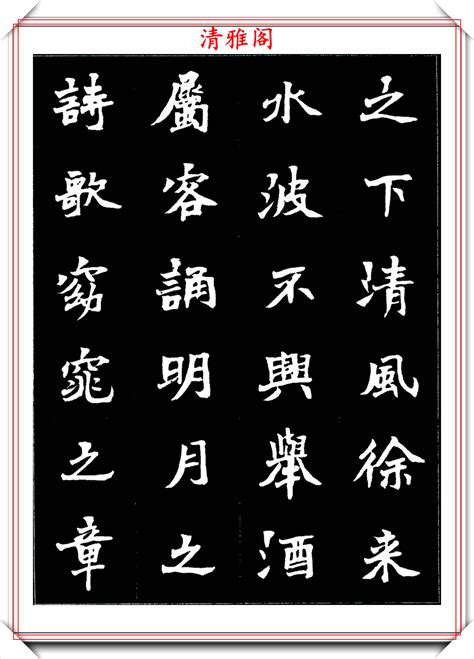 清雅阁
之下清風徐来
水波不興舉酒
屬客誦明月之
詩歌窈窕之章